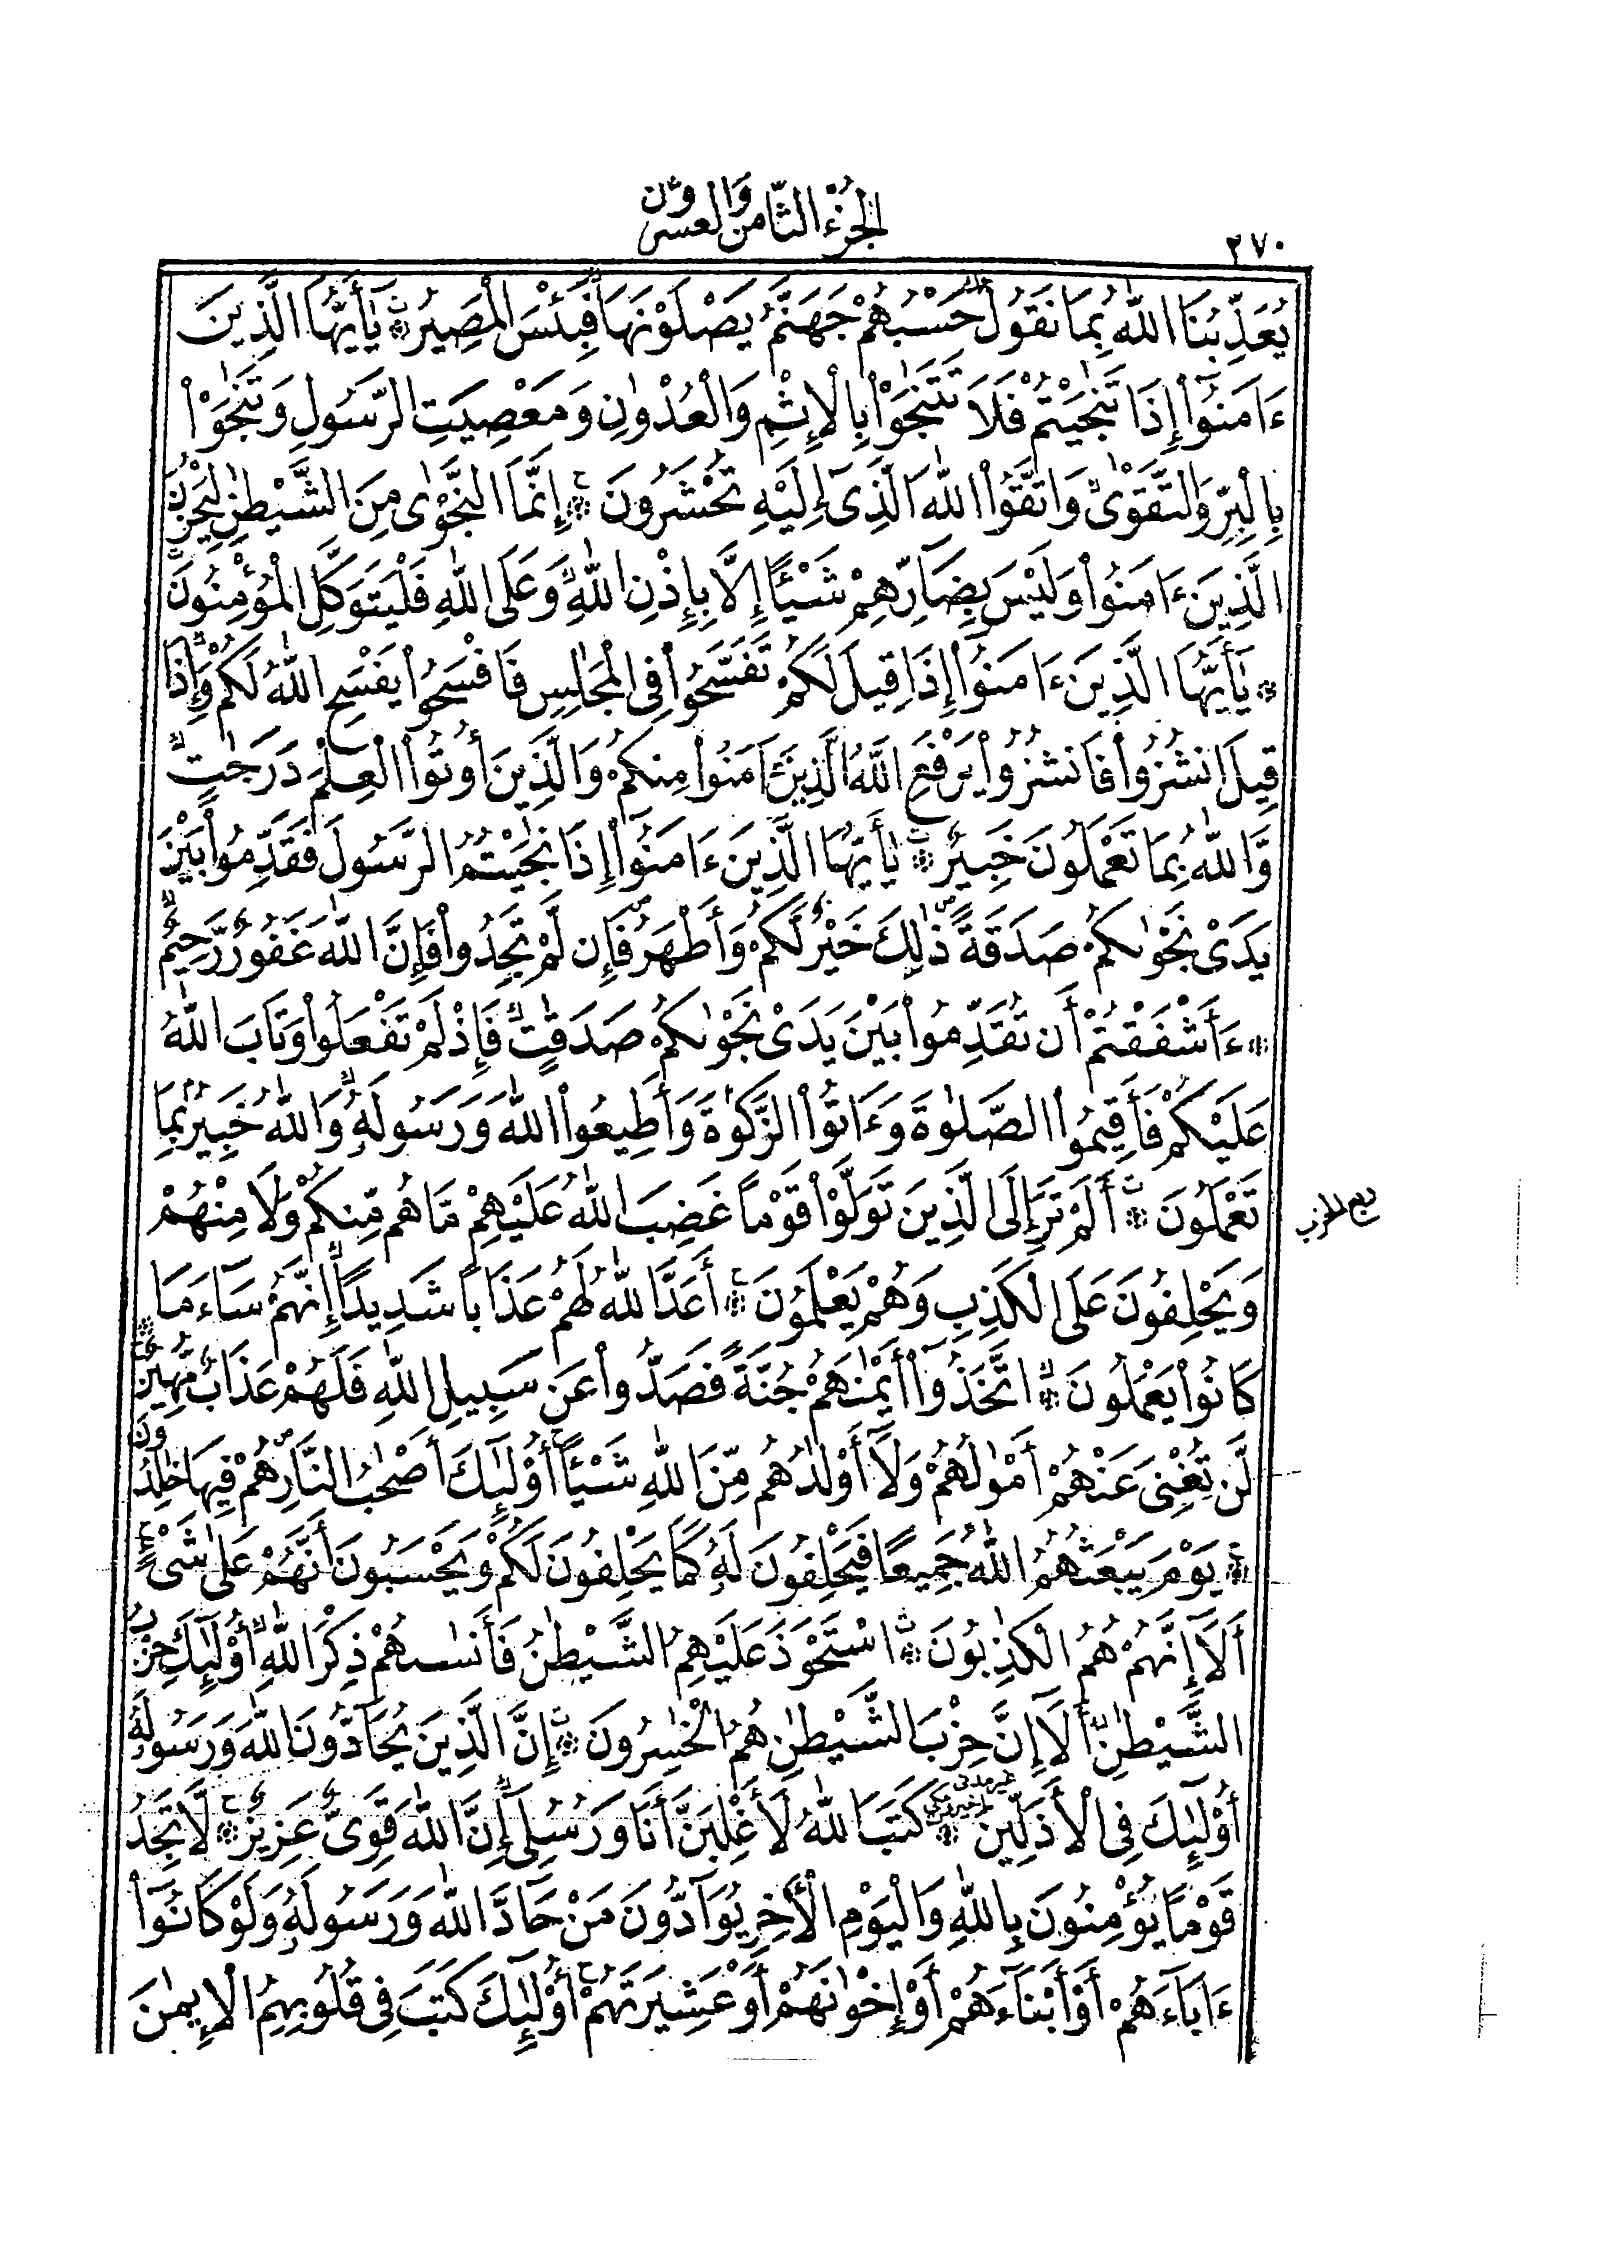 الجزء الثامن والعشرون
٢٧٠
يُعَذِّبُنَا اللَّهُ بِمَا نَقُولُ حَسْبُهُمْ جَهَنَّمُ يَصْلَوْنَهَا فَبِئْسَ الْمَصِيرُ يَٰٓأَيُّهَا الَّذِينَ
ءَامَنُوٓا۟ إِذَا تَنَٰجَيْتُمْ فَلَا تَتَنَٰجَوْا۟ بِالْإِثْمِ وَالْعُدْوَٰنِ وَمَعْصِيَتِ الرَّسُولِ وَتَنَٰجَوْا۟
بِالْبِرِّ وَالتَّقْوَىٰ وَاتَّقُوا۟ اللَّهَ الَّذِىٓ إِلَيْهِ تُحْشَرُونَ إِنَّمَا النَّجْوَىٰ مِنَ الشَّيْطَٰنِ لِيَحْزُنَ
الَّذِينَ ءَامَنُوا۟ وَلَيْسَ بِضَآرِّهِمْ شَيْـًٔا إِلَّا بِإِذْنِ اللَّهِ وَعَلَى اللَّهِ فَلْيَتَوَكَّلِ الْمُؤْمِنُونَ
يَٰٓأَيُّهَا الَّذِينَ ءَامَنُوٓا۟ إِذَا قِيلَ لَكُمْ تَفَسَّحُوا۟ فِى الْمَجَٰلِسِ فَافْسَحُوا۟ يَفْسَحِ اللَّهُ لَكُمْ وَإِذَا
قِيلَ انشُزُوا۟ فَانشُزُوا۟ يَرْفَعِ اللَّهُ الَّذِينَ ءَامَنُوا۟ مِنكُمْ وَالَّذِينَ أُوتُوا۟ الْعِلْمَ دَرَجَٰتٍ
وَاللَّهُ بِمَا تَعْمَلُونَ خَبِيرٌ يَٰٓأَيُّهَا الَّذِينَ ءَامَنُوٓا۟ إِذَا نَٰجَيْتُمُ الرَّسُولَ فَقَدِّمُوا۟ بَيْنَ
يَدَىْ نَجْوَىٰكُمْ صَدَقَةً ذَٰلِكَ خَيْرٌ لَّكُمْ وَأَطْهَرُ فَإِن لَّمْ تَجِدُوا۟ فَإِنَّ اللَّهَ غَفُورٌ رَّحِيمٌ
ءَأَشْفَقْتُمْ أَن تُقَدِّمُوا۟ بَيْنَ يَدَىْ نَجْوَىٰكُمْ صَدَقَٰتٍ فَإِذْ لَمْ تَفْعَلُوا۟ وَتَابَ اللَّهُ
عَلَيْكُمْ فَأَقِيمُوا۟ الصَّلَوٰةَ وَءَاتُوا۟ الزَّكَوٰةَ وَأَطِيعُوا۟ اللَّهَ وَرَسُولَهُ وَاللَّهُ خَبِيرٌۢ بِمَا
تَعْمَلُونَ أَلَمْ تَرَ إِلَى الَّذِينَ تَوَلَّوْا۟ قَوْمًا غَضِبَ اللَّهُ عَلَيْهِمْ مَّا هُم مِّنكُمْ وَلَا مِنْهُمْ
ربع الحزب
وَيَحْلِفُونَ عَلَى الْكَذِبِ وَهُمْ يَعْلَمُونَ أَعَدَّ اللَّهُ لَهُمْ عَذَابًا شَدِيدًا إِنَّهُمْ سَآءَ مَا
كَانُوا۟ يَعْمَلُونَ اتَّخَذُوٓا۟ أَيْمَٰنَهُمْ جُنَّةً فَصَدُّوا۟ عَن سَبِيلِ اللَّهِ فَلَهُمْ عَذَابٌ مُّهِينٌ
لَّن تُغْنِىَ عَنْهُمْ أَمْوَٰلُهُمْ وَلَآ أَوْلَٰدُهُم مِّنَ اللَّهِ شَيْـًٔا أُو۟لَٰٓئِكَ أَصْحَٰبُ النَّارِ هُمْ فِيهَا خَٰلِدُونَ
يَوْمَ يَبْعَثُهُمُ اللَّهُ جَمِيعًا فَيَحْلِفُونَ لَهُ كَمَا يَحْلِفُونَ لَكُمْ وَيَحْسَبُونَ أَنَّهُمْ عَلَىٰ شَىْءٍ
أَلَآ إِنَّهُمْ هُمُ الْكَٰذِبُونَ اسْتَحْوَذَ عَلَيْهِمُ الشَّيْطَٰنُ فَأَنسَىٰهُمْ ذِكْرَ اللَّهِ أُو۟لَٰٓئِكَ حِزْبُ
الشَّيْطَٰنِ أَلَآ إِنَّ حِزْبَ الشَّيْطَٰنِ هُمُ الْخَٰسِرُونَ إِنَّ الَّذِينَ يُحَآدُّونَ اللَّهَ وَرَسُولَهُ
أُو۟لَٰٓئِكَ فِى الْأَذَلِّينَ كَتَبَ اللَّهُ لَأَغْلِبَنَّ أَنَا وَرُسُلِىٓ إِنَّ اللَّهَ قَوِىٌّ عَزِيزٌ لَّا تَجِدُ
قَوْمًا يُؤْمِنُونَ بِاللَّهِ وَالْيَوْمِ الْأَخِرِ يُوَآدُّونَ مَنْ حَآدَّ اللَّهَ وَرَسُولَهُ وَلَوْ كَانُوٓا۟
ءَابَآءَهُمْ أَوْ أَبْنَآءَهُمْ أَوْ إِخْوَٰنَهُمْ أَوْ عَشِيرَتَهُمْ أُو۟لَٰٓئِكَ كَتَبَ فِى قُلُوبِهِمُ الْإِيمَٰنَ